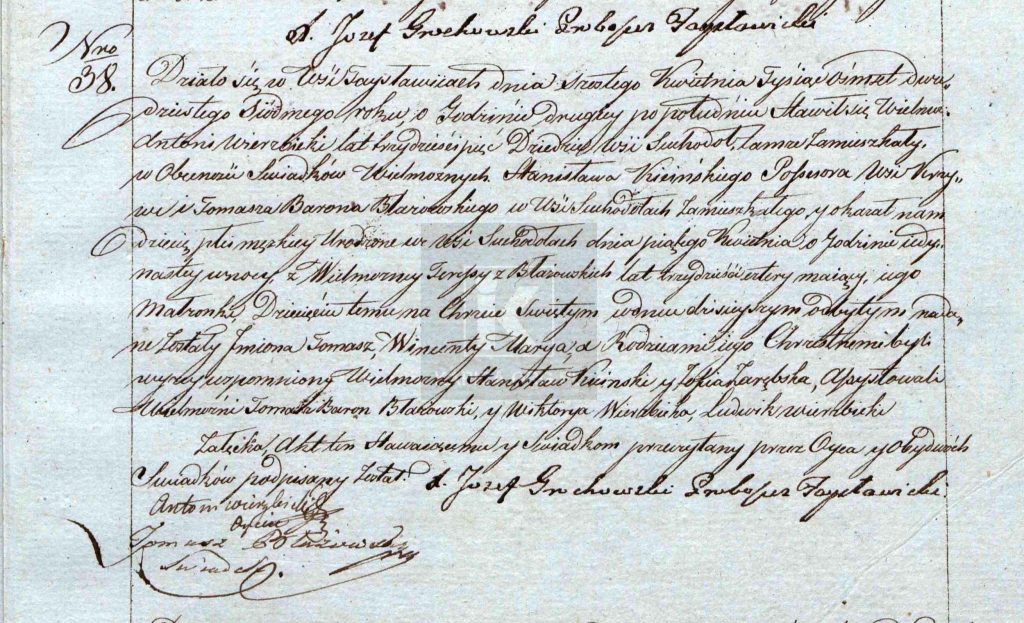 X. Jozef Grochowski Proboszcz Faysławicki
Nro
38.
Działo się w Wsi Faysławicach dnia szostego Kwietnia Tysiąc Ośmset dwu„
dziestego Siódmego roku o Godzinie drugiey po południu Stawił się Wielmo.
Antoni Wierzbicki lat trzydzieści pięć Dziedzic Wsi Suchodoł, Tamże Zamieszkały,
w Obecności Swiadków Wielmożnych Stanisława Kicińskiego Possesora Wsi Krzy„
wi i Tomasza Barona Błażowskiego w Wsi Suchodołach Zamieszkałego, y okazał nam
dziecię płci męzkiey Urodzone we Wsi Suchodołach dnia piątego Kwietnia o Godzinie iedy„
nastey w nocy, z Wielmożney Teressy z Błażowskich lat trzydzieści cztery maiący, iego
Małżonki, Dziecięciu temu na Chrzcie Swiętym w dniu dzisieyszym odbytym nada„
ne Zostały Imiona Tomasz, Wincenty Marya, a Rodzicami iego Chrzestnemi byli
wyzey wspomniony Wielmożny Stanisław Kicinski y Zofia Zarębska, Assystowali
Wielmożni Tomasz Baron Błażowski, y Wiktorya Wierzbicka, Ludwik Wierzbicki
Załęska, Akt ten Stawaiącemu y Swiadkom przeczytany przez Oyca y Obydwóch
Swiadków podpisany Został. X. Jozef Grochowski Proboszcz Faysławicki.
Antoni Wierzbicki
Oyciec
Tomasz Błażowski
Swiadek.